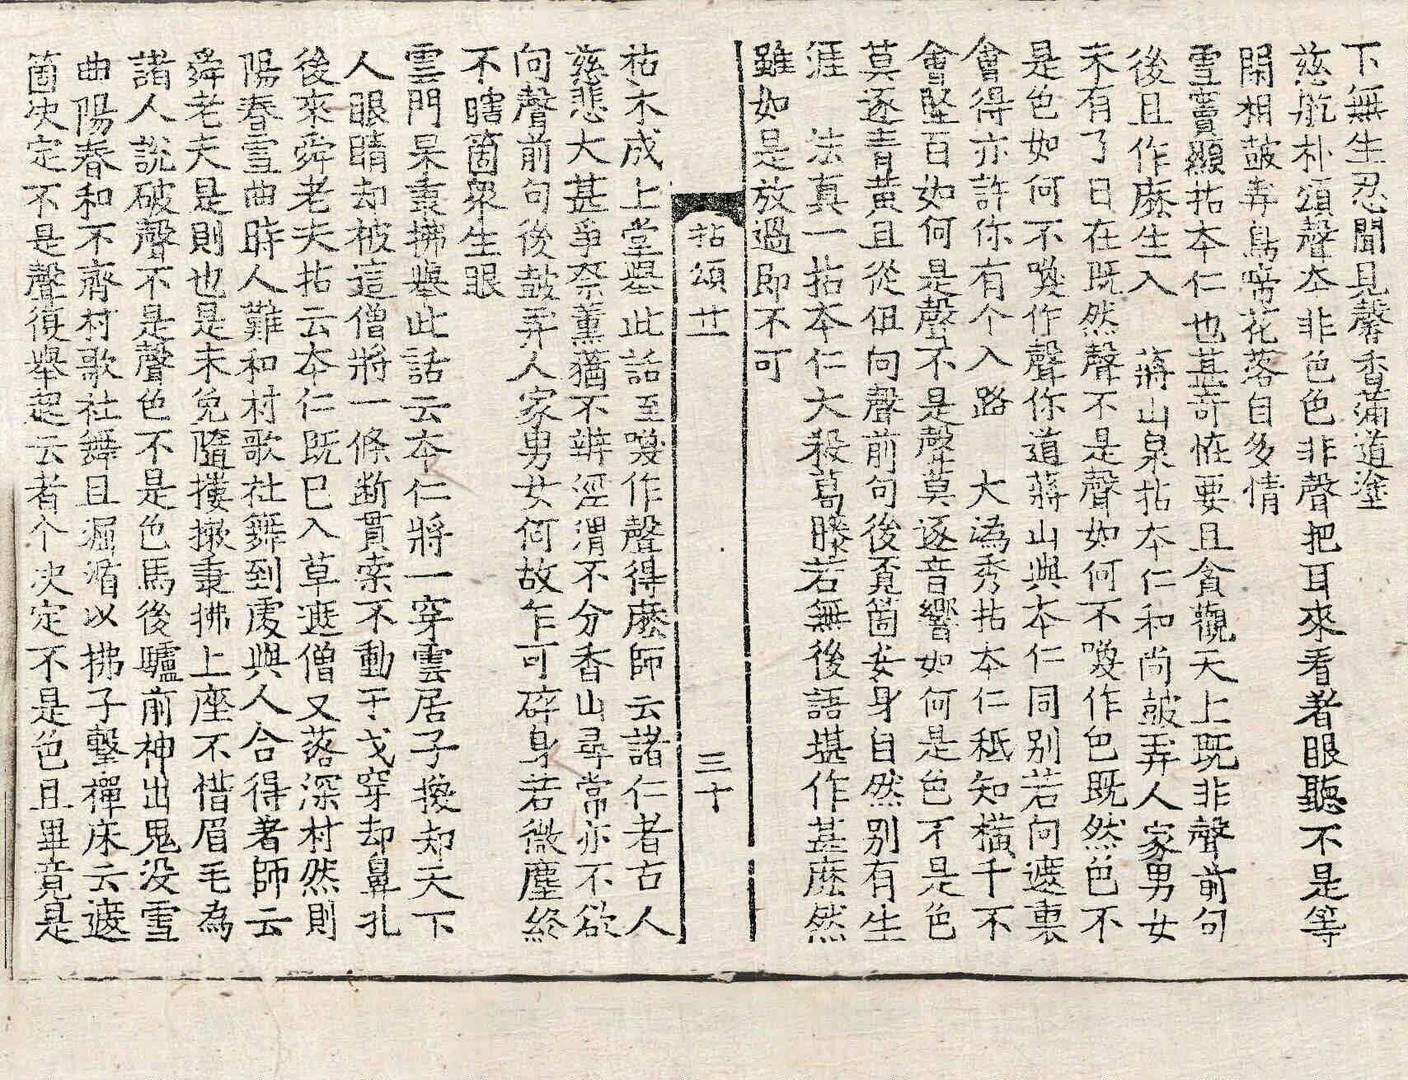 下無生忍聞見馨香蒲道塗
慈航朴頌聲夲非色色非聲把耳來看著眼聽不是等
閑相皷弄鳥啼花落自多情
雪竇顯拈夲仁也甚竒恠要且貪觀天上既非聲前句
後且作麽生入 蔣山泉拈夲仁和尚皷弄人家男女
未有了日在既然聲不是聲如何不喚作色既然色不
是色如何不喚作聲你道蔣山與夲仁同別若向遮裏
會得亦許你有个入路 大溈秀拈夲仁秪知橫千不
會竪百如何是聲不是聲莫逐音響如何是色不是色
莫逐青黃且從伹向聲前句後覓箇安身自然別有生
涯 法真一拈夲仁大殺葛藤若無後語堪作甚麽然
雖如是放過即不可
拈頌廿一 三十
枯木成上堂舉此話至喚作聲得麽師云諸仁者古人
慈悲大甚爭奈薰蕕不辨涇渭不分香山尋常亦不欲
向聲前句後鼓弄人家男女何故乍可碎身若微塵終
不瞎箇衆生眼
雲門杲秉拂舉此話云夲仁將一穿雲居子換却天下
人眼睛却被這僧將一條断貫索不動干戈穿却鼻孔
後來舜老夫拈云夲仁既已入草遮僧又落深村然則
陽春雪曲時人難和村歌社舞到處與人合得著師云
舜老夫是則也是未免隨摟摗秉拂上座不惜眉毛為
諸人説破聲不是聲色不是色馬後驢前神出鬼没雪
曲陽春和不齊村歌社舞且淈㴞以拂子擊禪床云遮
箇决定不是聲復舉起云者个决定不是色且畢竟是